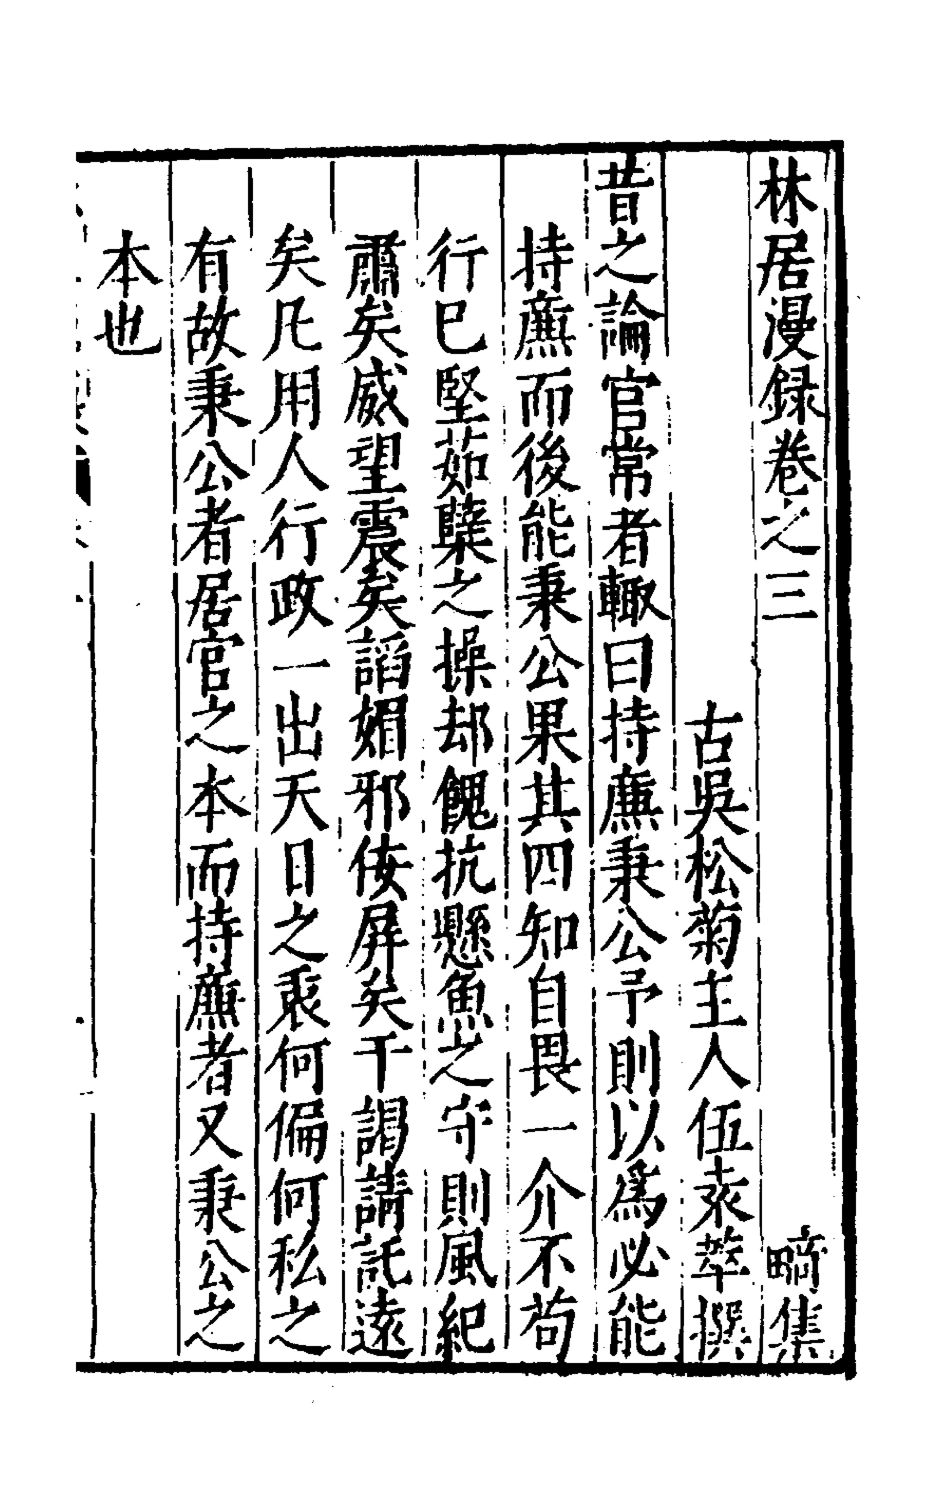 林居漫録卷之三 畸集
古吳松菊主人伍袁萃撰
昔之論官常者輙曰持廉秉公予則以爲必能
持廉而後能秉公果其四知自畏一介不苟
行已堅茹櫱之操却餽抗懸魚之守則風紀
肅矣威望震矣謟媚邪佞屏矣干謁請託遠
矣凡用人行政一出天日之衷何偏何私之
有故秉公者居官之本而持廉者又秉公之
本也